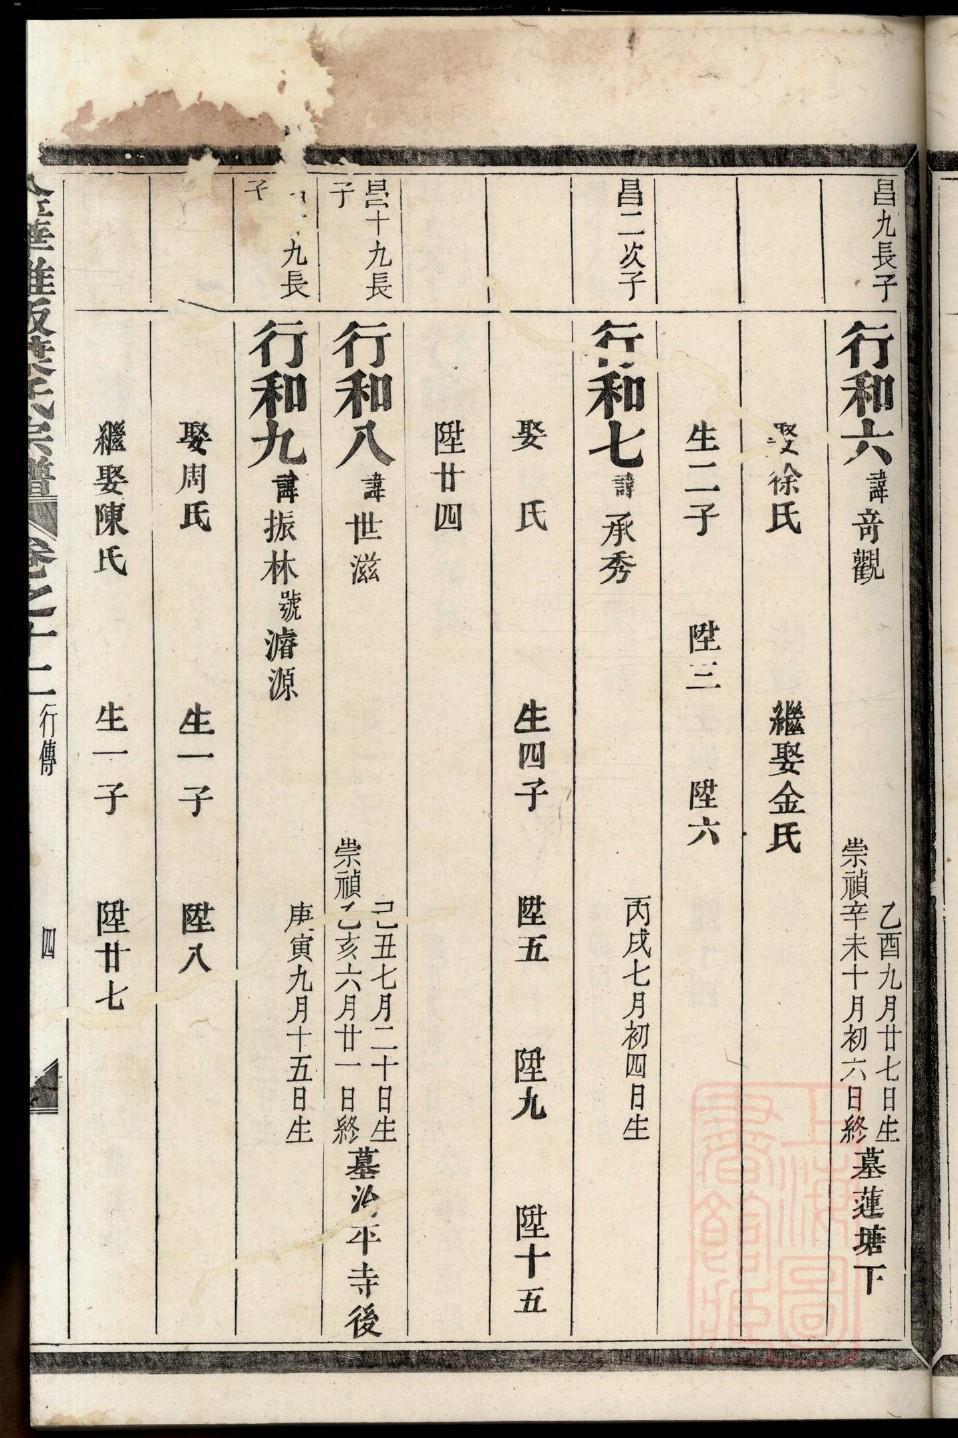 昌九長子
行和六諱奇觀 乙酉九月廿七日生 崇禎辛未十月初六日終 墓蓮塘下
娶徐氏 繼娶金氏
生二子 陞三 陞六
昌二次子
行和七諱承秀 丙戌七月初四日生
娶 氏 生四子 陞五 陞九 陞十五
陞廿四
昌十九長子
行和八諱世滋 己丑七月二十日生 崇禎乙亥六月廿一日終 墓治平寺後
九長子
行和九諱振林號濬源 庚寅九月十五日生
娶周氏 生一子 陞八
繼娶陳氏 生一子 陞廿七
金華雅畈葉氏宗譜 卷之十二 行傳 四
上海圖書館藏